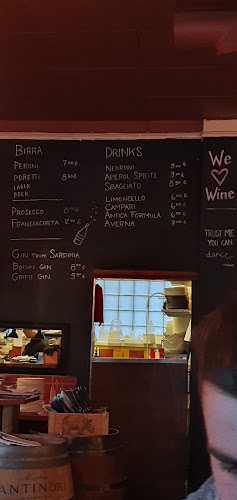 BIRRA
PERONI 7.00€
PORETTI 8.00€
LAGER
BOCK
PROSECCO 8.00€
FRANCIACORTA 12.00€
GIN FROM SARDINIA
BOIGIN GIN 8.50€
GRIFU GIN 9.50€
DRINKS
NEGRONI 9.00€
APEROL SPRITZ 9.00€
SBAGLIATO 8.50€
LIMONCELLO 6.00€
CAMPARI 6.00€
ANTICA FORMULA 6.00€
AVERNA 7.00€
We
Wine
TRUST ME
YOU CAN
dance
ANTINORI